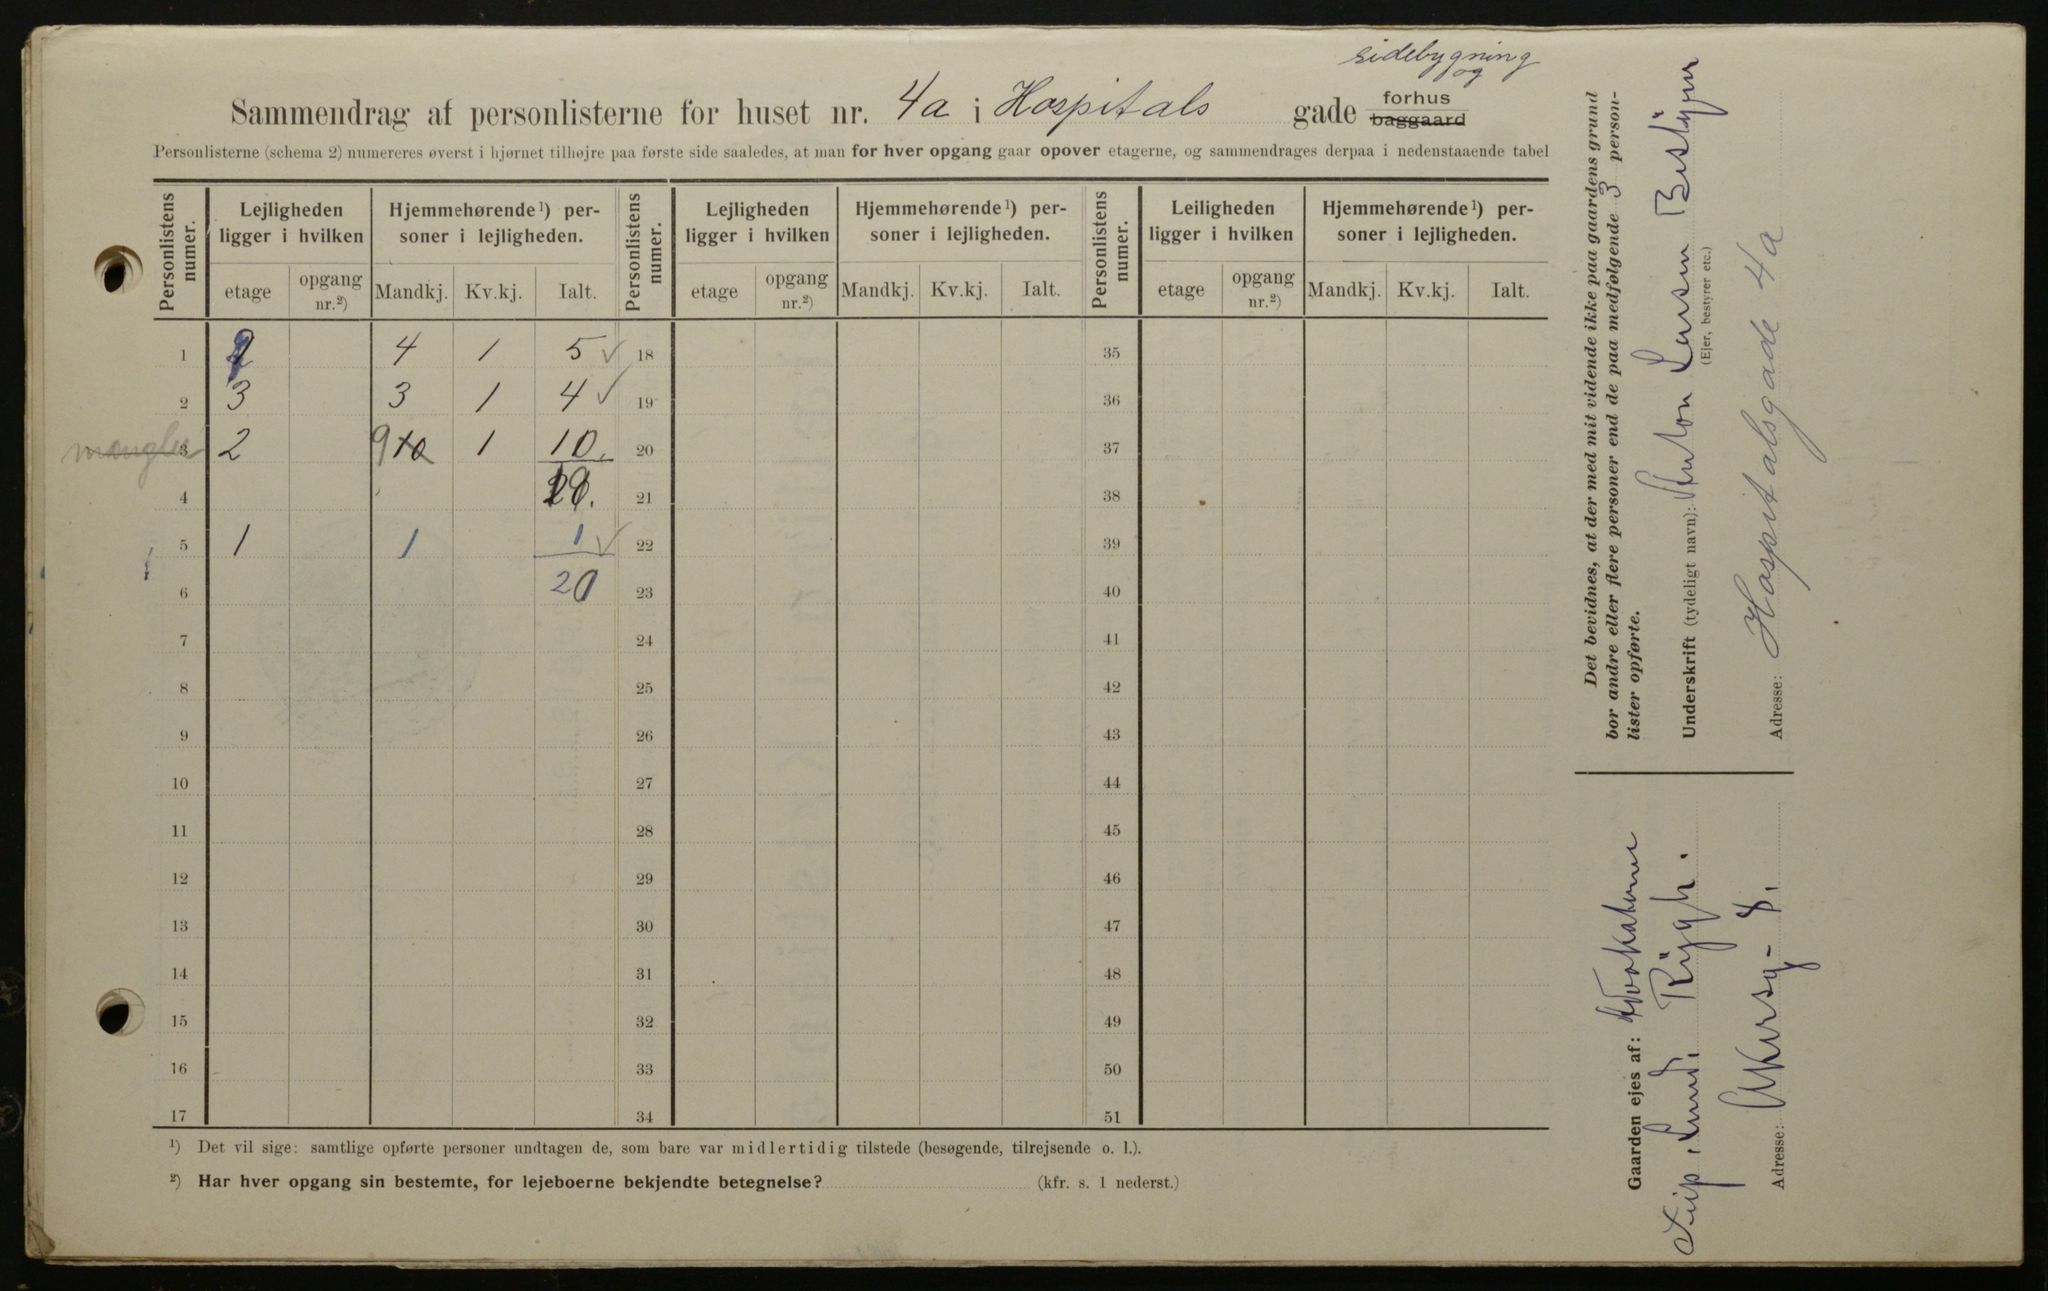 sidebygning
og
Sammendrag af personlisterne for huset nr. 4a i Hospitals gade forhus baggaard
Personlisterne (schema 2) numereres øverst i hjørnet tilhøjre paa første side saaledes, at man for hver opgang gaar opover etagerne, og sammendrages derpaa i nedenstaaende tabel
Personlistens numer. Lejligheden ligger i hvilken Hjemmehørende ¹) personer i lejligheden. Personlistens numer. Lejligheden ligger i hvilken Hjemmehørende ¹) personer i lejligheden. Personlistens numer. Leiligheden ligger i hvilken Hjemmehørende ¹) personer i lejligheden.
etage opgang nr.²) Mandkj. Kv.kj. Ialt. etage opgang nr.²) Mandkj. Kv.kj. Ialt. etage opgang nr.²) Mandkj. Kv.kj. Ialt.
1 4 1 5 ✓ 18 35
2 3 3 1 4 ✓ 19 36
mangler 3 2 9 10 1 10. 20 37
4 21 38
5 1 1 1 ✓ 22 39
6 20 23 40
7 24 41
8 25 42
9 26 43
10 27 44
11 28 45
12 29 46
13 30 47
14 31 48
15 32 49
16 33 50
17 34 51
¹) Det vil sige: samtlige opførte personer undtagen de, som bare var midlertidig tilstede (besøgende, tilrejsende o. l.).
²) Har hver opgang sin bestemte, for lejeboerne bekjendte betegnelse? (kfr. s. 1 nederst.)
Det bevidnes, at der med mit vidende ikke paa gaardens grund
bor andre eller flere personer end de paa medfølgende 3 person-
lister opførte.
Underskrift (tydeligt navn): Anton Larsen Bestyrer
(Ejer, bestyrer etc.)
Adresse: Hospitalsgade 4a
Gaarden ejes af: Advokaterne
Lund. Rygh.
Adresse: Akersg- 8.